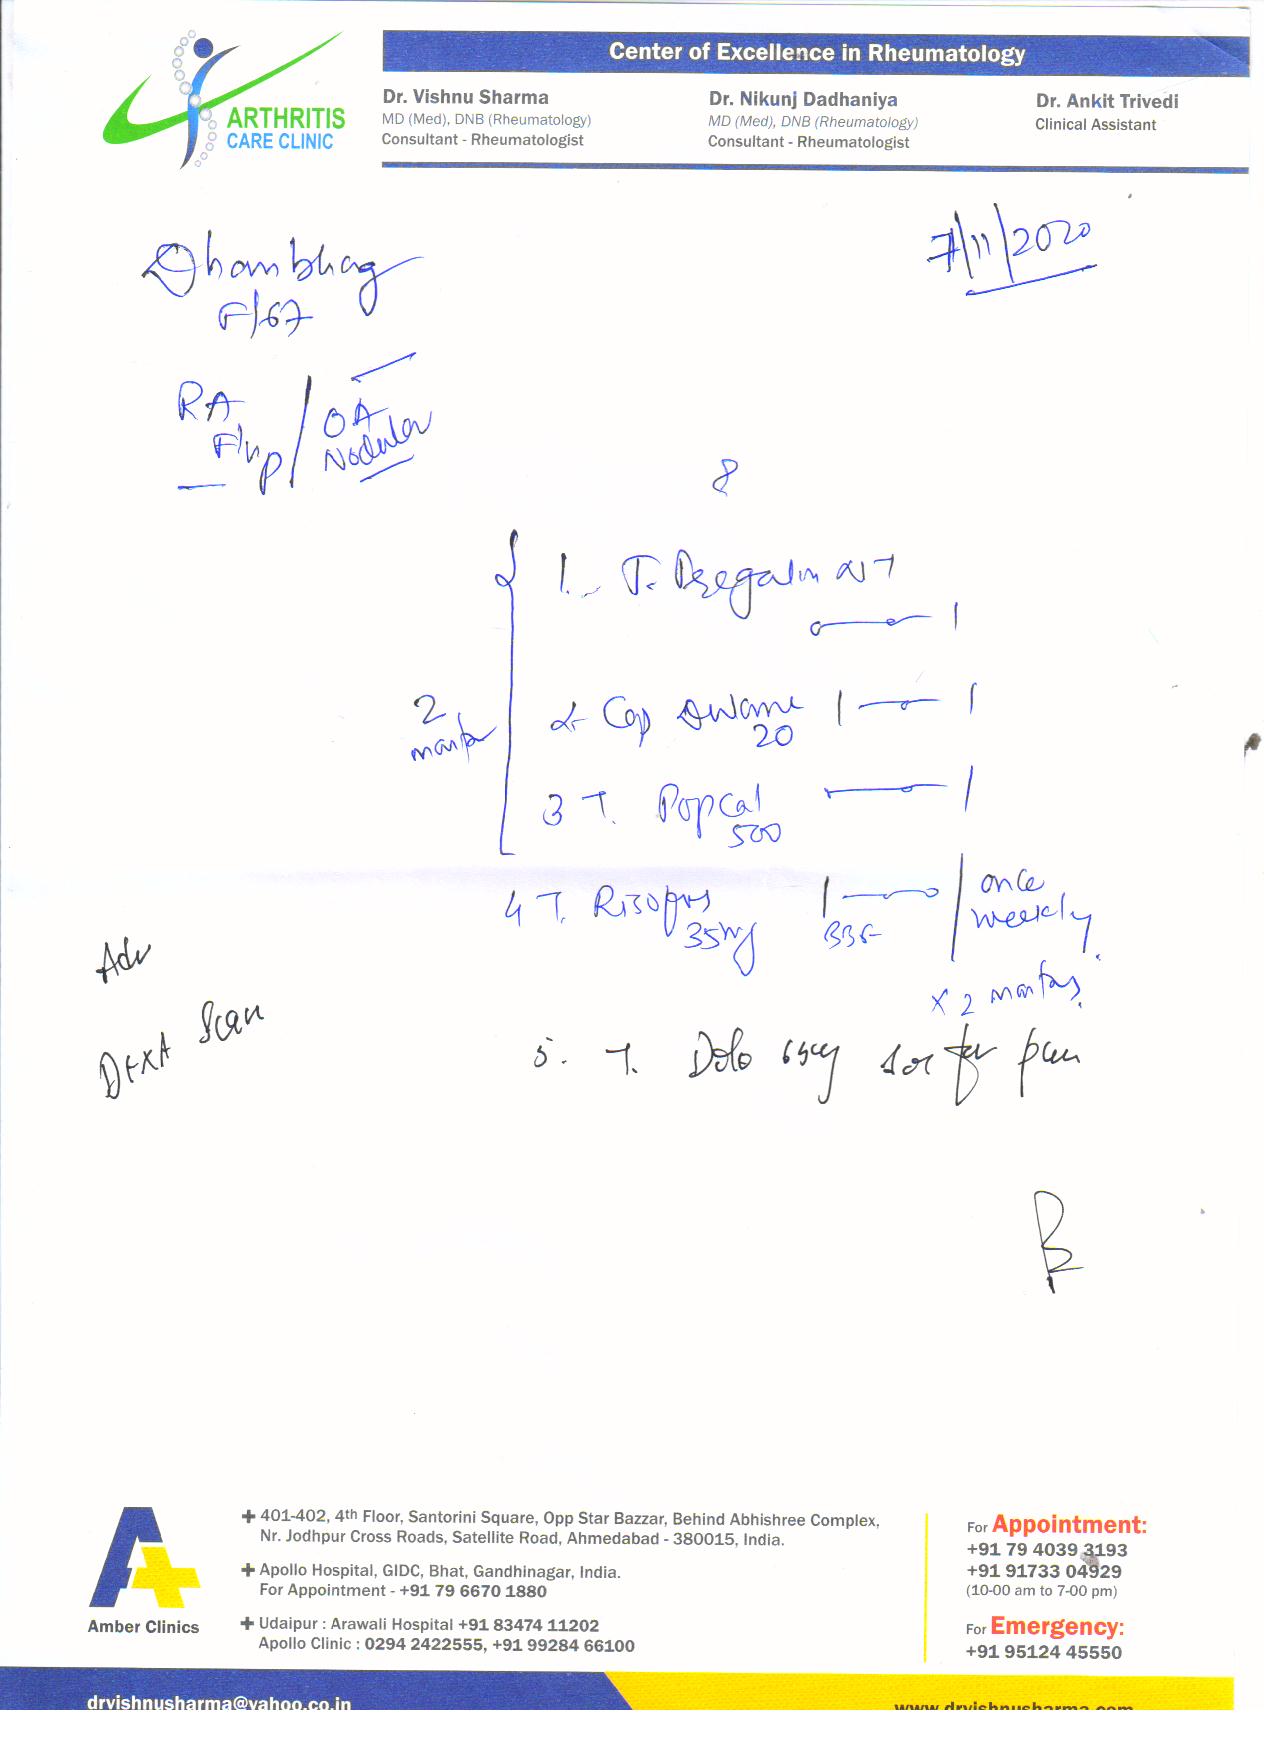 ARTHRITIS
CARE CLINIC
Center of Excellence in Rheumatology
Dr. Vishnu Sharma
MD (Med), DNB (Rheumatology)
Consultant - Rheumatologist
Dr. Nikunj Dadhaniya
MD (Med), DNB (Rheumatology)
Consultant - Rheumatologist
Dr. Ankit Trivedi
Clinical Assistant
7/11/2020
F/67
RA
OA
Nodular
8
1. T.
2 Cap
20
3 T. Popcal
500
2
4 T. Risofos
35mg
BBF
once
weekly
x 2 months
Adv
DEXA Scan
5. T. Dolo 650 SOS for pain
Amber Clinics
401-402, 4th Floor, Santorini Square, Opp Star Bazzar, Behind Abhishree Complex,
Nr. Jodhpur Cross Roads, Satellite Road, Ahmedabad - 380015, India.
Apollo Hospital, GIDC, Bhat, Gandhinagar, India.
For Appointment - +91 79 6670 1880
Udaipur : Arawali Hospital +91 83474 11202
Apollo Clinic : 0294 2422555, +91 99284 66100
For Appointment:
+91 79 4039 3193
+91 91733 04929
(10-00 am to 7-00 pm)
For Emergency:
+91 95124 45550
drvishnusharma@yahoo.co.in
www.drvishnusharma.com